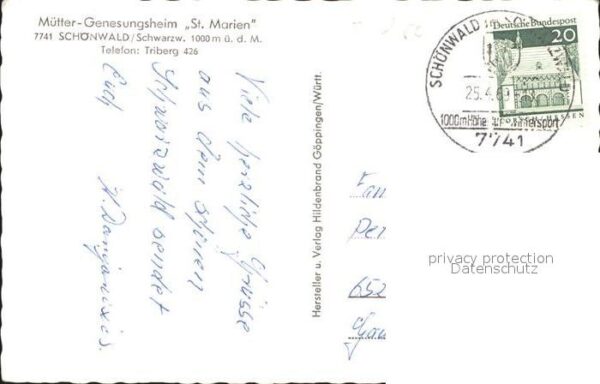 Mütter-Genesungsheim „St. Marien"
7741 SCHÖNWALD/Schwarzw. 1000 m ü. d. M.
Telefon: Triberg 426
Viele herzliche Grüsse
aus dem schönen
Schwarzwald sendet
Euch
Hersteller u. Verlag Hildenbrand Göppingen/Württ.
SCHÖNWALD
25.4.69
1000m Höhe Wintersport
7741
Deutsche Bundespost
20
LORSCH/HESSEN
Fam
652
privacy protection
Datenschutz